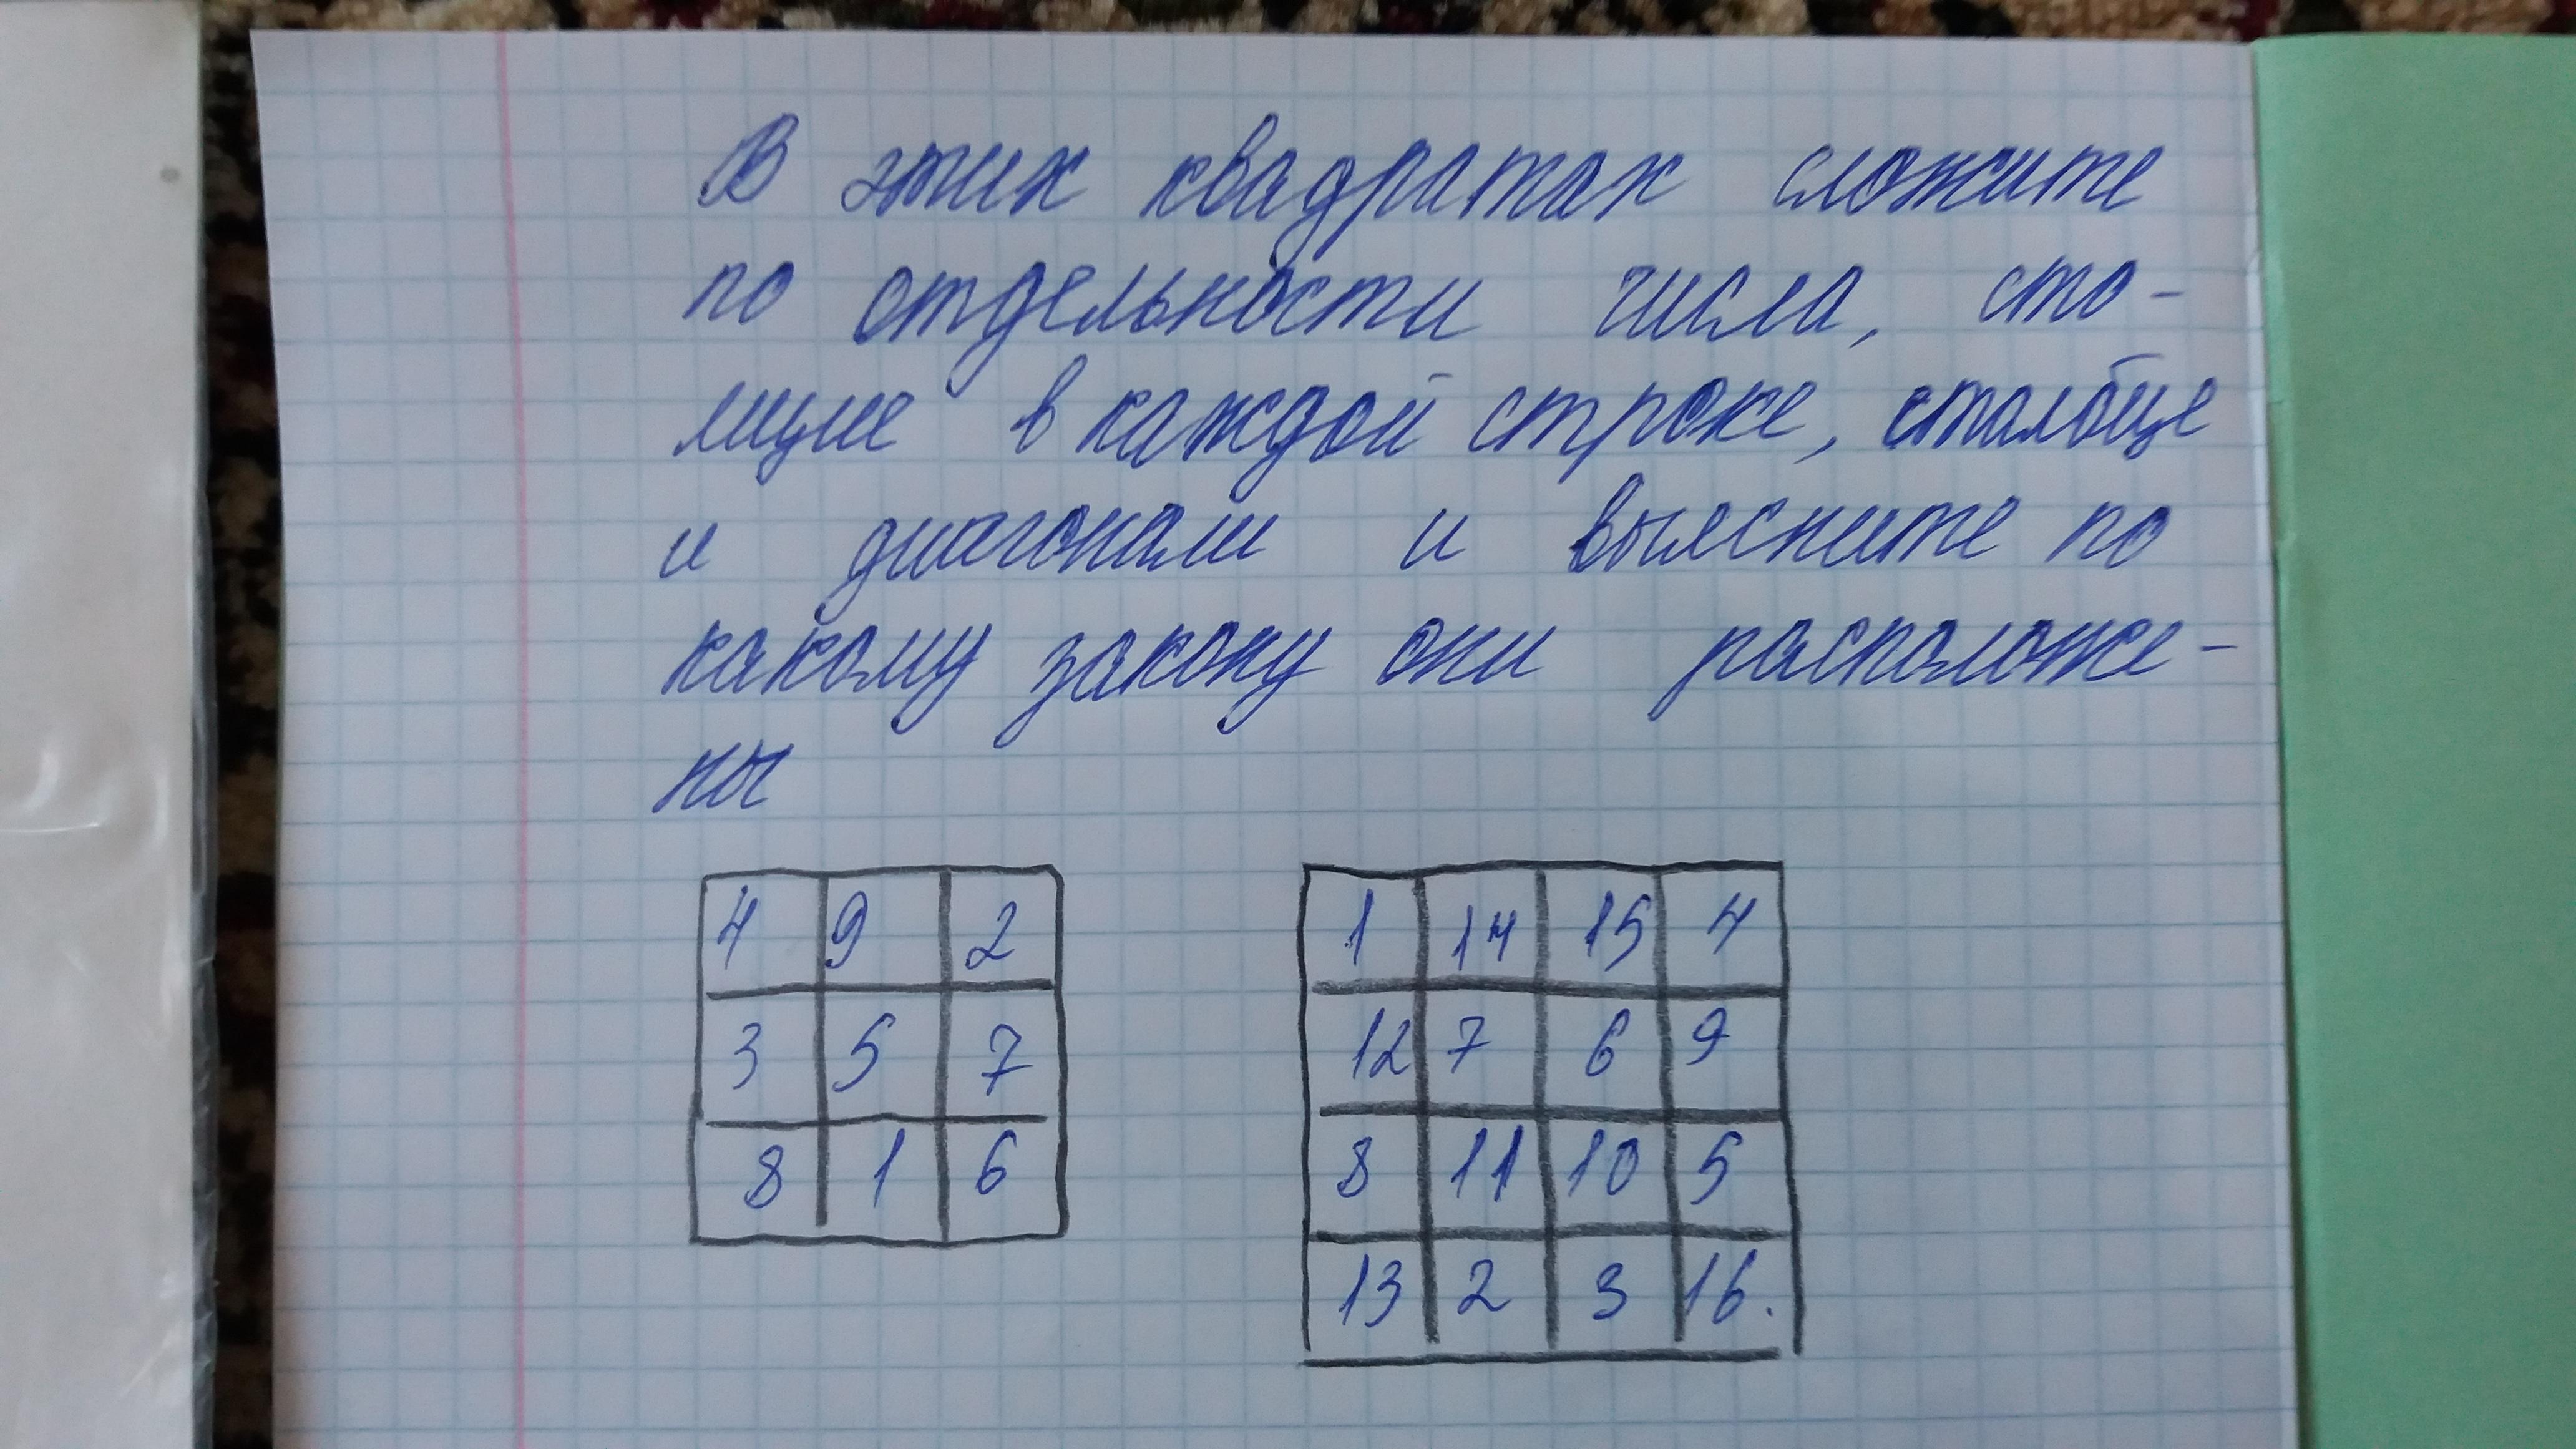 В этих квадратах сложите
по отдельности числа, сто-
ящие в каждой строке, столбце
и диагонали и выясните по
какому закону они расположе-
ны
4 9 2
3 5 7
8 1 6
1 14 15 4
12 7 6 9
8 11 10 5
13 2 3 16.